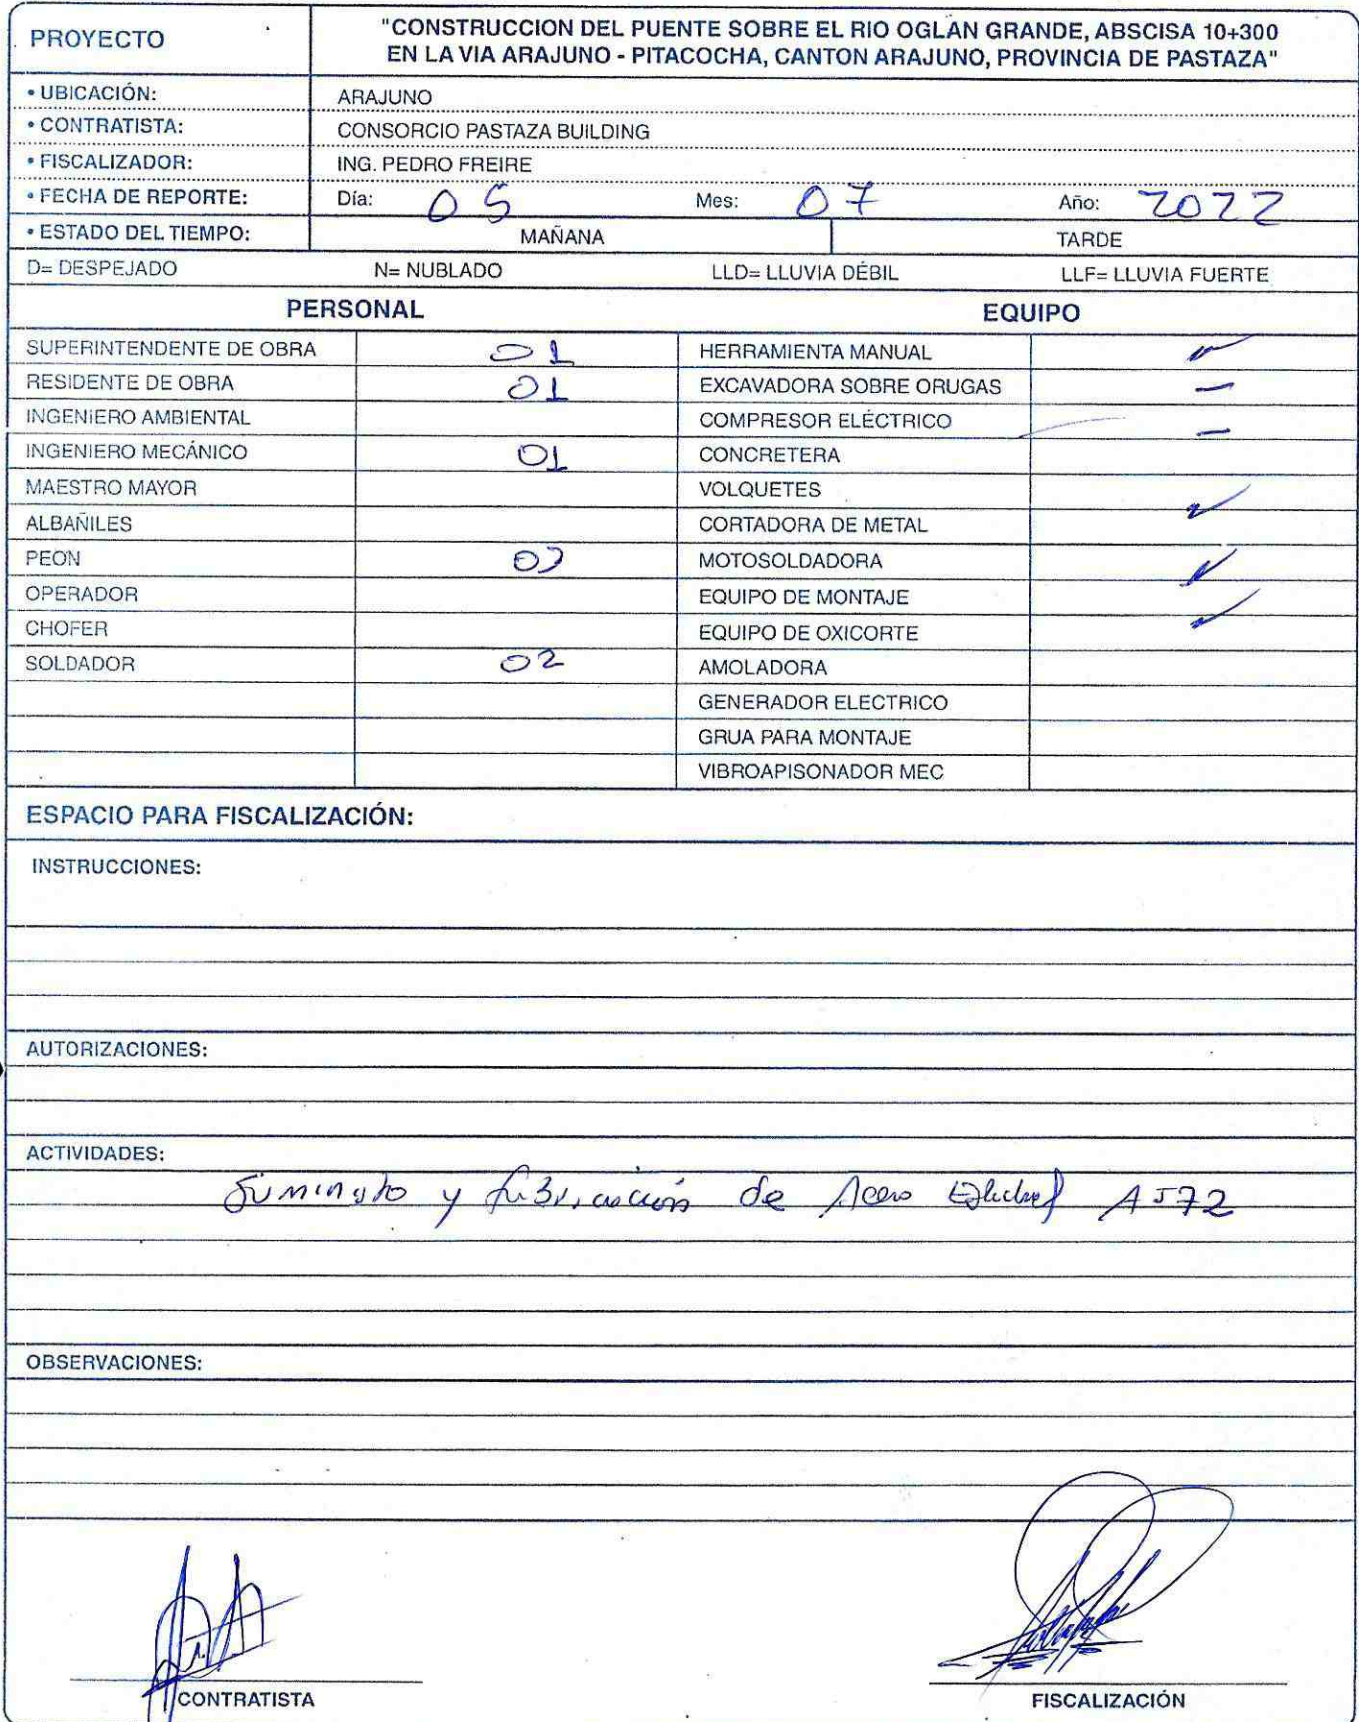 PROYECTO
"CONSTRUCCION DEL PUENTE SOBRE EL RIO OGLAN GRANDE, ABSCISA 10+300
EN LA VIA ARAJUNO - PITACOCHA, CANTON ARAJUNO, PROVINCIA DE PASTAZA"
• UBICACIÓN: ARAJUNO
• CONTRATISTA: CONSORCIO PASTAZA BUILDING
• FISCALIZADOR: ING. PEDRO FREIRE
• FECHA DE REPORTE: Día: 05 Mes: 07 Año: 2022
• ESTADO DEL TIEMPO: MAÑANA TARDE
D= DESPEJADO N= NUBLADO LLD= LLUVIA DÉBIL LLF= LLUVIA FUERTE
PERSONAL EQUIPO
SUPERINTENDENTE DE OBRA 01 HERRAMIENTA MANUAL ✓
RESIDENTE DE OBRA 01 EXCAVADORA SOBRE ORUGAS –
INGENIERO AMBIENTAL COMPRESOR ELÉCTRICO –
INGENIERO MECÁNICO 01 CONCRETERA
MAESTRO MAYOR VOLQUETES
ALBAÑILES CORTADORA DE METAL ✓
PEON MOTOSOLDADORA ✓
OPERADOR EQUIPO DE MONTAJE
CHOFER EQUIPO DE OXICORTE ✓
SOLDADOR 02 AMOLADORA
GENERADOR ELECTRICO
GRUA PARA MONTAJE
VIBROAPISONADOR MEC
ESPACIO PARA FISCALIZACIÓN:
INSTRUCCIONES:
AUTORIZACIONES:
ACTIVIDADES:
y de Acero
OBSERVACIONES:
CONTRATISTA FISCALIZACIÓN